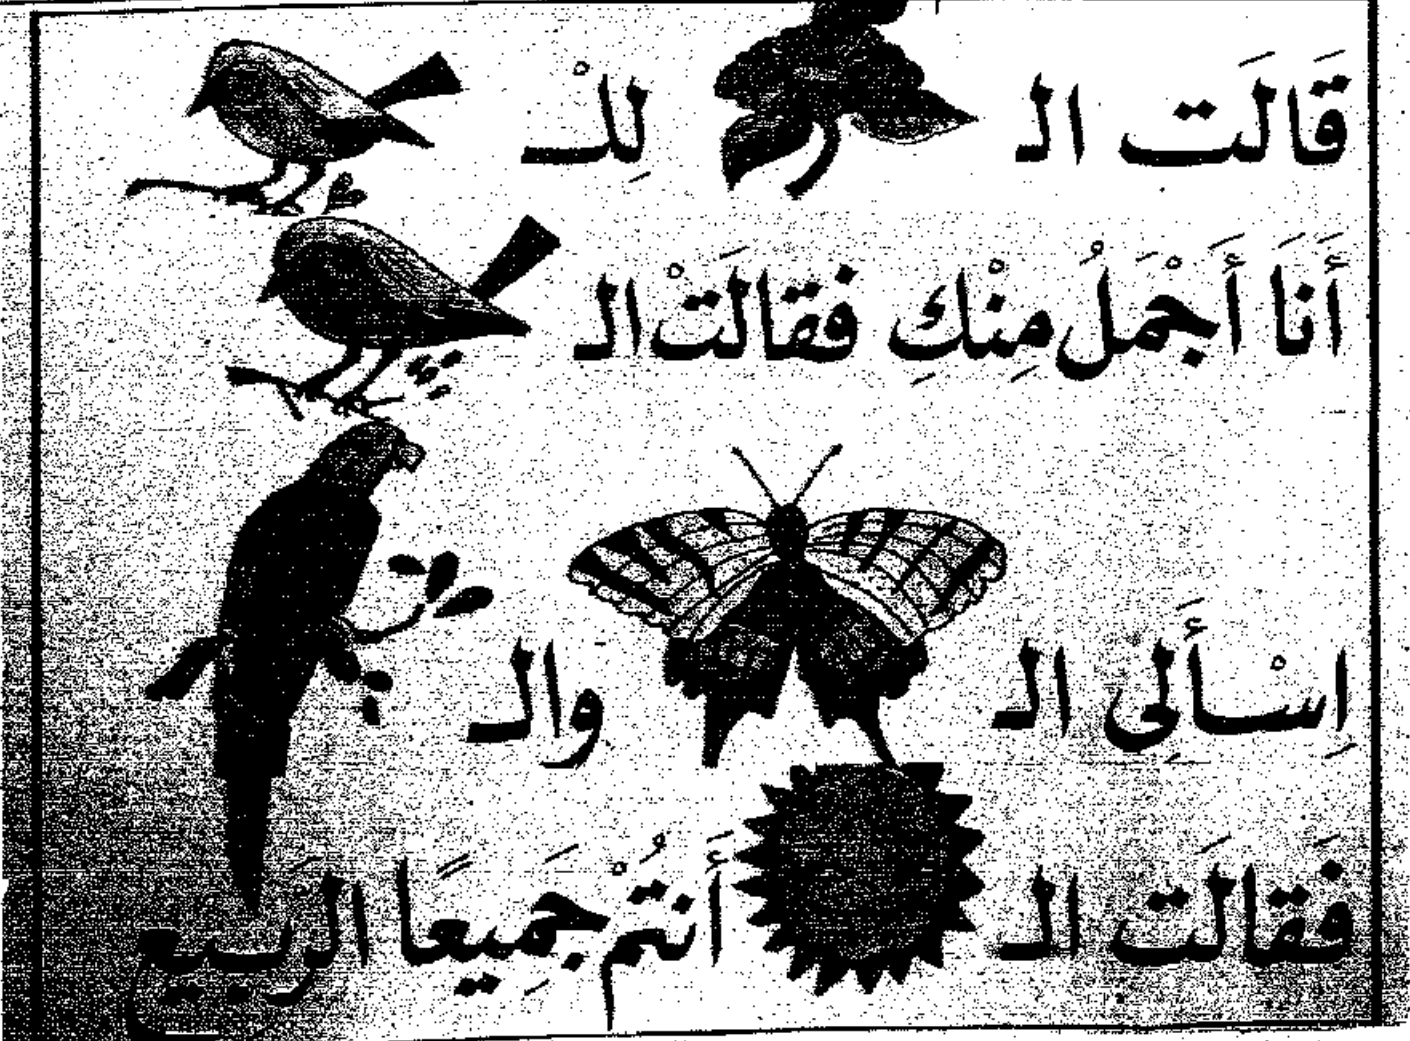 قَالَت الـ لِلْـ
أَنَا أَجْمَلُ مِنْكِ فقالَتْ الـ
اِسْأَلِى الـ والـ
فَقالَت الـ أَنتُمْ جَمِيعًا الرَبيع